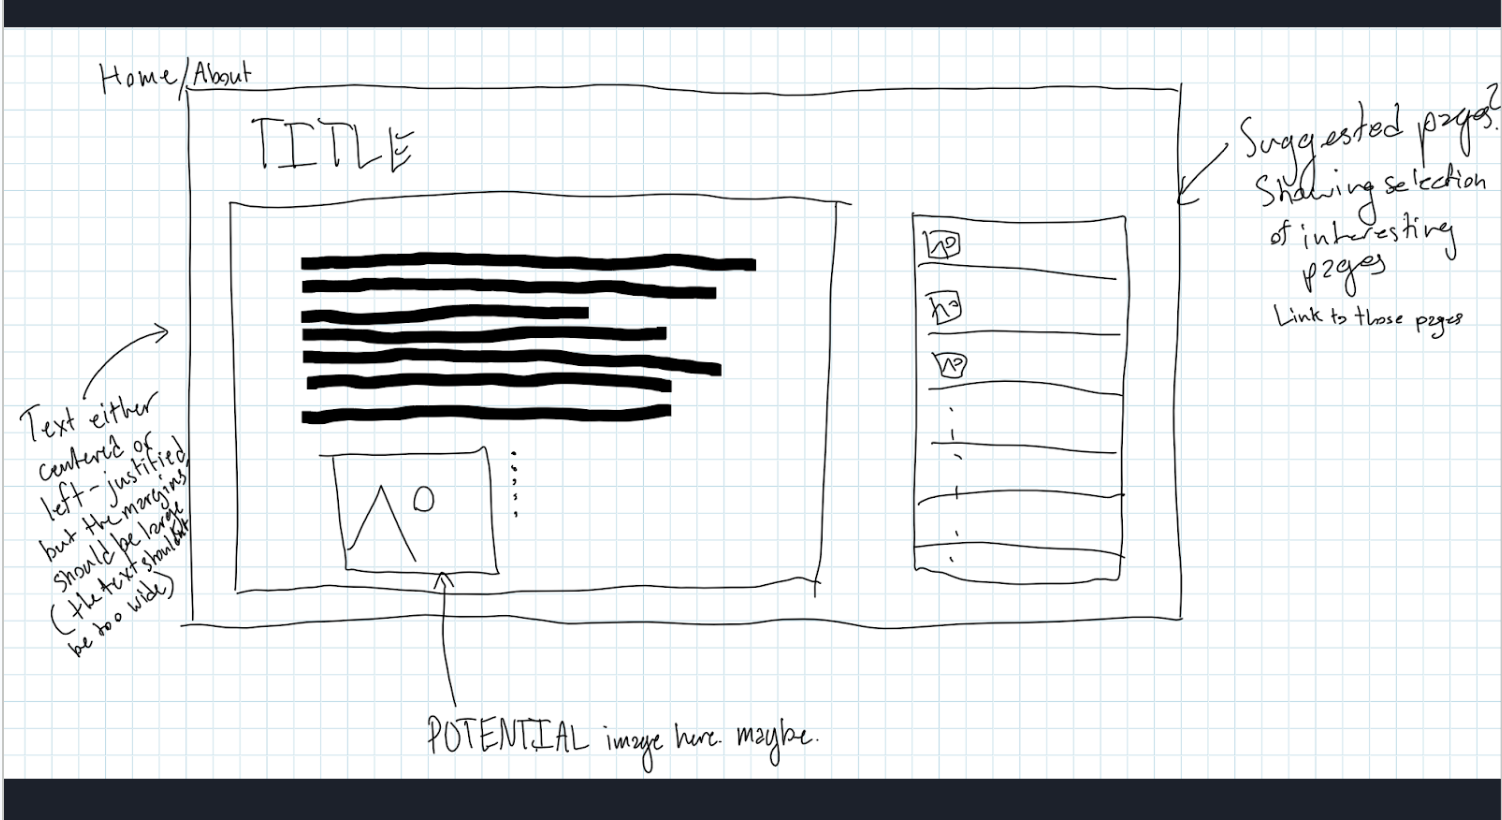 Home/About
TITLE
Suggested pages?
Showing selection
of interesting
pages
Link to those pages
Text either
centered or
left-justified,
but the margins
should be large
(the text shouldn't
be too wide)
POTENTIAL image here. maybe.